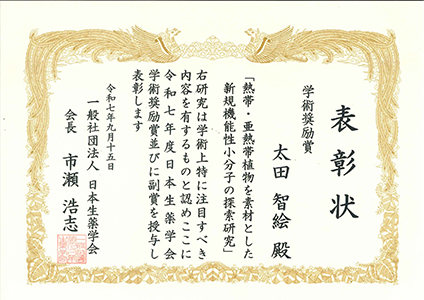 表彰状
学術奨励賞
太田 智絵 殿
「熱帯・亜熱帯植物を素材とした
新規機能性小分子の探索研究」
右研究は学術上特に注目すべき
内容を有するものと認めここに
令和七年度日本生薬学会
学術奨励賞並びに副賞を授与し
表彰します
令和七年九月十五日
一般社団法人 日本生薬学会
会長 市瀬 浩志